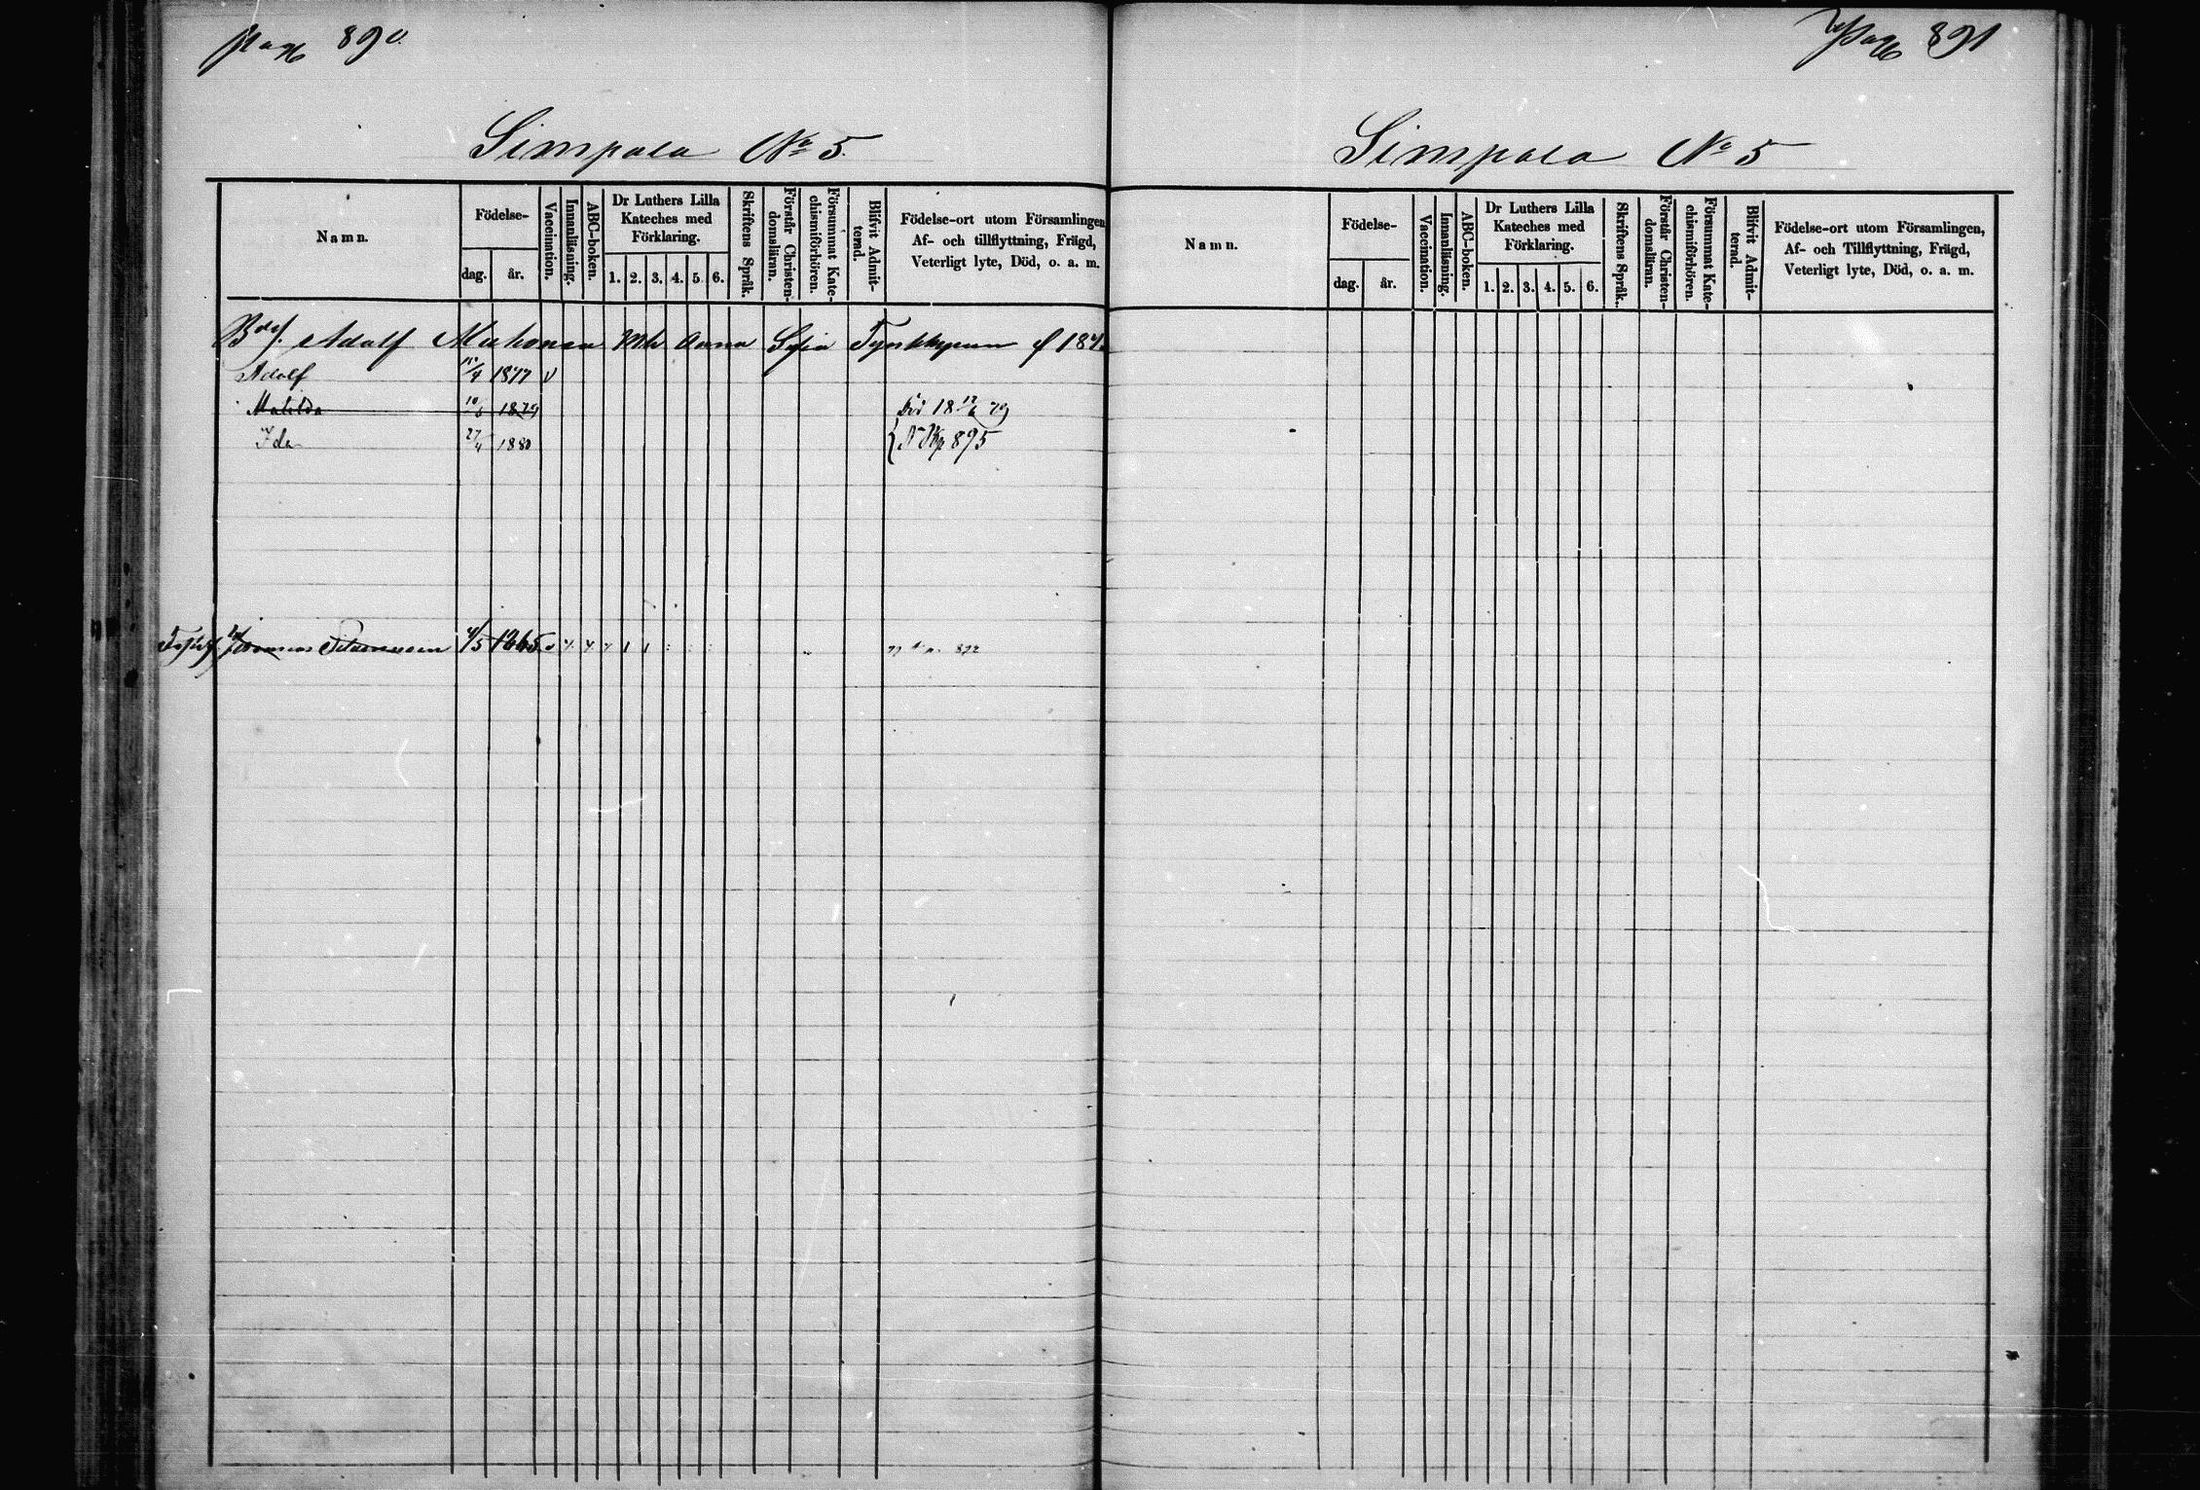 pag 890.
Simpala No 5.
Namn.
Födelse-
dag.
år.
Vaccination.
Innanläsning.
ABC-boken.
Dr Luthers Lilla
Kateches med
Förklaring.
1. 2. 3. 4. 5. 6.
Skriftens Språk.
Förstår Christen-
domsläran.
Försummat Kate-
chismiförhören.
Blifvit Admit-
terad.
Födelse-ort utom Församlingen
Af- och tillflyttning, Frägd,
Veterligt lyte, Död, o. a. m.
Adolf Anna Sofia
Adolf 1877 v
Matilda 10/6 1879 Död 18 12/6 79
Ida 27/4 1880 895
4/5 1865
Pag 891
Simpala No 5
Namn.
Födelse-
dag.
år.
Vaccination.
Innanläsning.
ABC-boken.
Dr Luthers Lilla
Kateches med
Förklaring.
1. 2. 3. 4. 5. 6.
Skriftens Språk.
Förstår Christen-
domsläran.
Försummat Kate-
chismiförhören.
Blifvit Admit-
terad.
Födelse-ort utom Församlingen,
Af- och Tillflyttning, Frägd,
Veterligt lyte, Död, o. a. m.